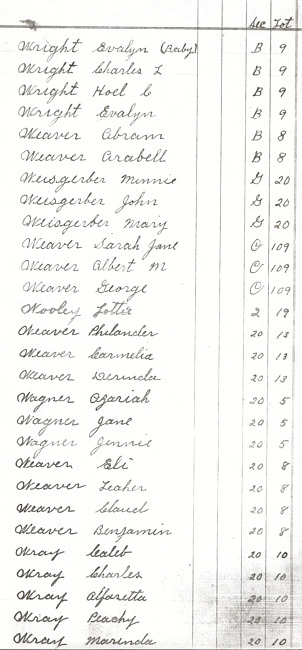 Sec Lot
Wright Evalyn (Baby) B 9
Wright Charles L B 9
Wright Hoel C B 9
Wright Evalyn B 9
Weaver Abram B 8
Weaver Arabell B 8
Weisgerber Minnie G 20
Weisgerber John G 20
Weisgerber Mary G 20
Weaver Sarah Jane O 109
Weaver Albert M O 109
Weaver George O 109
Wooley Lottie 2 19
Weaver Philander 20 13
Weaver Carmelia 20 13
Weaver Derinda 20 13
Wagner Ozariah 20 5
Wagner Jane 20 5
Wagner Jennie 20 5
Weaver Eli 20 8
Weaver Leaher 20 8
Weaver Claud 20 8
Weaver Benjamin 20 8
Wray Caleb 20 10
Wray Charles 20 10
Wray Alfaretta 20 10
Wray Peachy 20 10
Wray Marinda 20 10